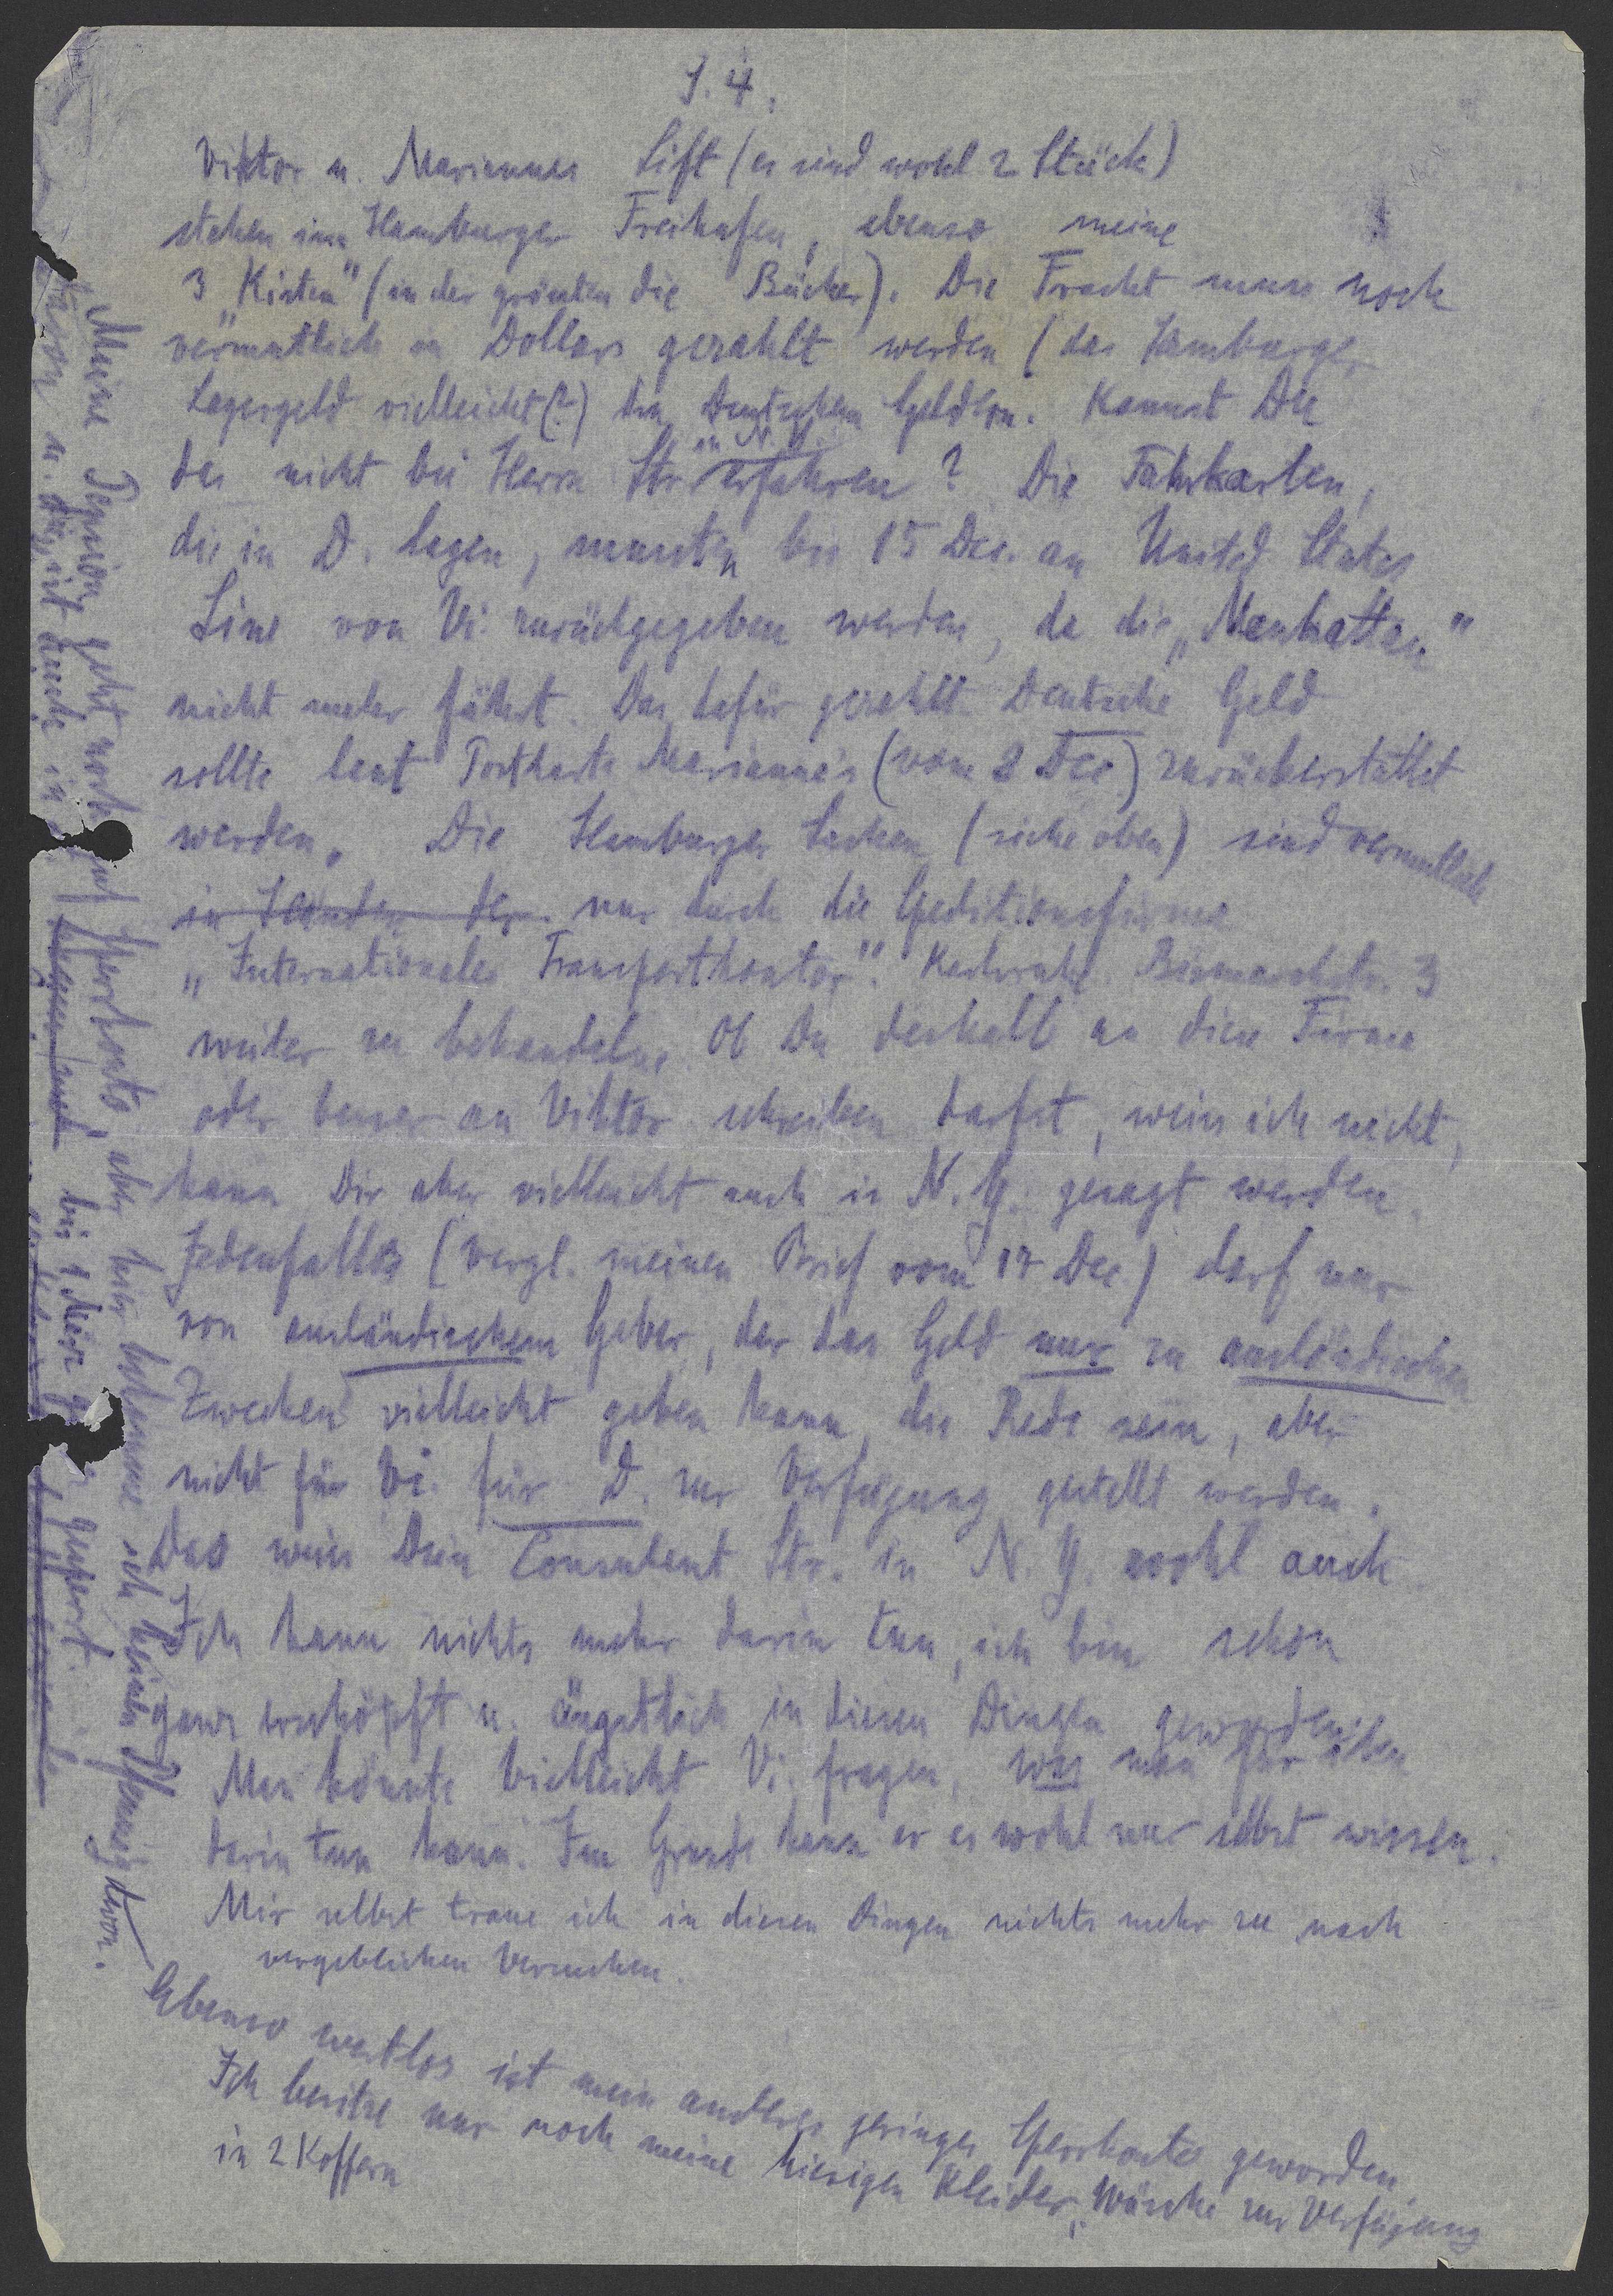 S. 4.
Viktor u. Mariannes Lift (es sind wohl 2 Stück)
stehen im Hamburger Freihafen, ebenso meine
3 "Kisten" (in der grössten die Bücher). Die Fracht muss noch
vermutlich in Dollars gezahlt werden (das Hamburger
Lagergeld vielleicht (?) in Deutschem Geldem. Kannst Du
in N. Y.
das nicht bei Herrn Str. erfahren? Die Fahrkarten,
die in D. lagen, mussten bis 15 Dec. an United States
Line von Vi. zurückgegeben werden, da die „Manhattan"
nicht mehr fährt. Das dafür gezahlte Deutsche Geld
sollte laut Postkarte Marianne's (vom 2 Dec) zurückerstattet
werden. Die Hamburger Sachen (siehe oben) sind vermutlich
in Händen der nur durch die Speditionsfirma
„Internationales Transportkontor". Karlsruhe Bismarckstr. 3
weiter zu behandeln. Ob Du deshalb an diese Firma
oder besser an Viktor schreiben darfst, weiss ich nicht,
kann Dir aber vielleicht auch in N. Y. gesagt werden.
Jedenfalls (vergl. meinen Brief vom 17 Dec) darf nur
von ausländischem Geber, der das Geld nur zu ausländischen
Zwecken vielleicht geben kann, die Rede sein, aber
nicht für Vi. für D. zur Verfügung gestellt werden.
Das weiss Dein Consulent Str. in N. Y. wohl auch.
Ich kann nichts mehr darin tun, ich bin schon
ganz erschöpft u. ängstlich in diesen Dingen geworden.
Man könnte vielleicht Vi. fragen, was man für ihn
darin tun kann. Im Grunde kann er es wohl nur selbst wissen.
Mir selbst traue ich in diesen Dingen nichts mehr zu nach
vergeblichen Versuchen.
Ebenso wertlos ist mein anderes geringes Sperrkonto geworden
Ich besitze nur noch meine hiesigen Kleider, Wäsche zur Verfügung
in 2 Koffern
Meine Pension geht noch auf Sperrkonto, aber hier bekomme ich keinen Pfennig davon.
davon u. die ist auch in bis 1 März gesperrt.